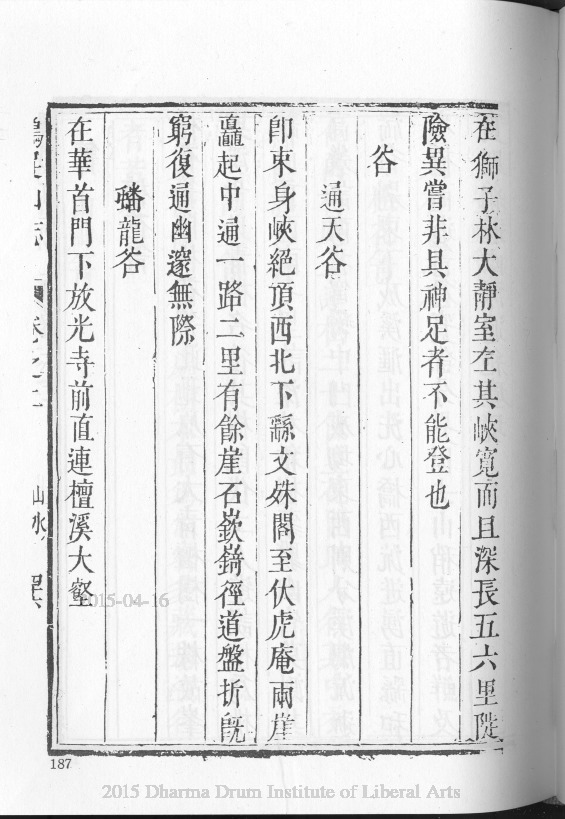 在獅子林大靜室左其峽寬而且深長五六里陡
險異嘗非具神足者不能登也
谷
通天谷
卽束身峽絕頂西北下繇文姝閣至伏虎庵兩崖
矗起中通一路二里有餘崖石嶔錡徑道盤折旣
窮復通幽邃無際
蟠龍谷
在華首門下放光寺前直連檀溪大壑
山志 卷之二 山水
187
2015-04-16
2015 Dharma Drum Institute of Liberal Arts